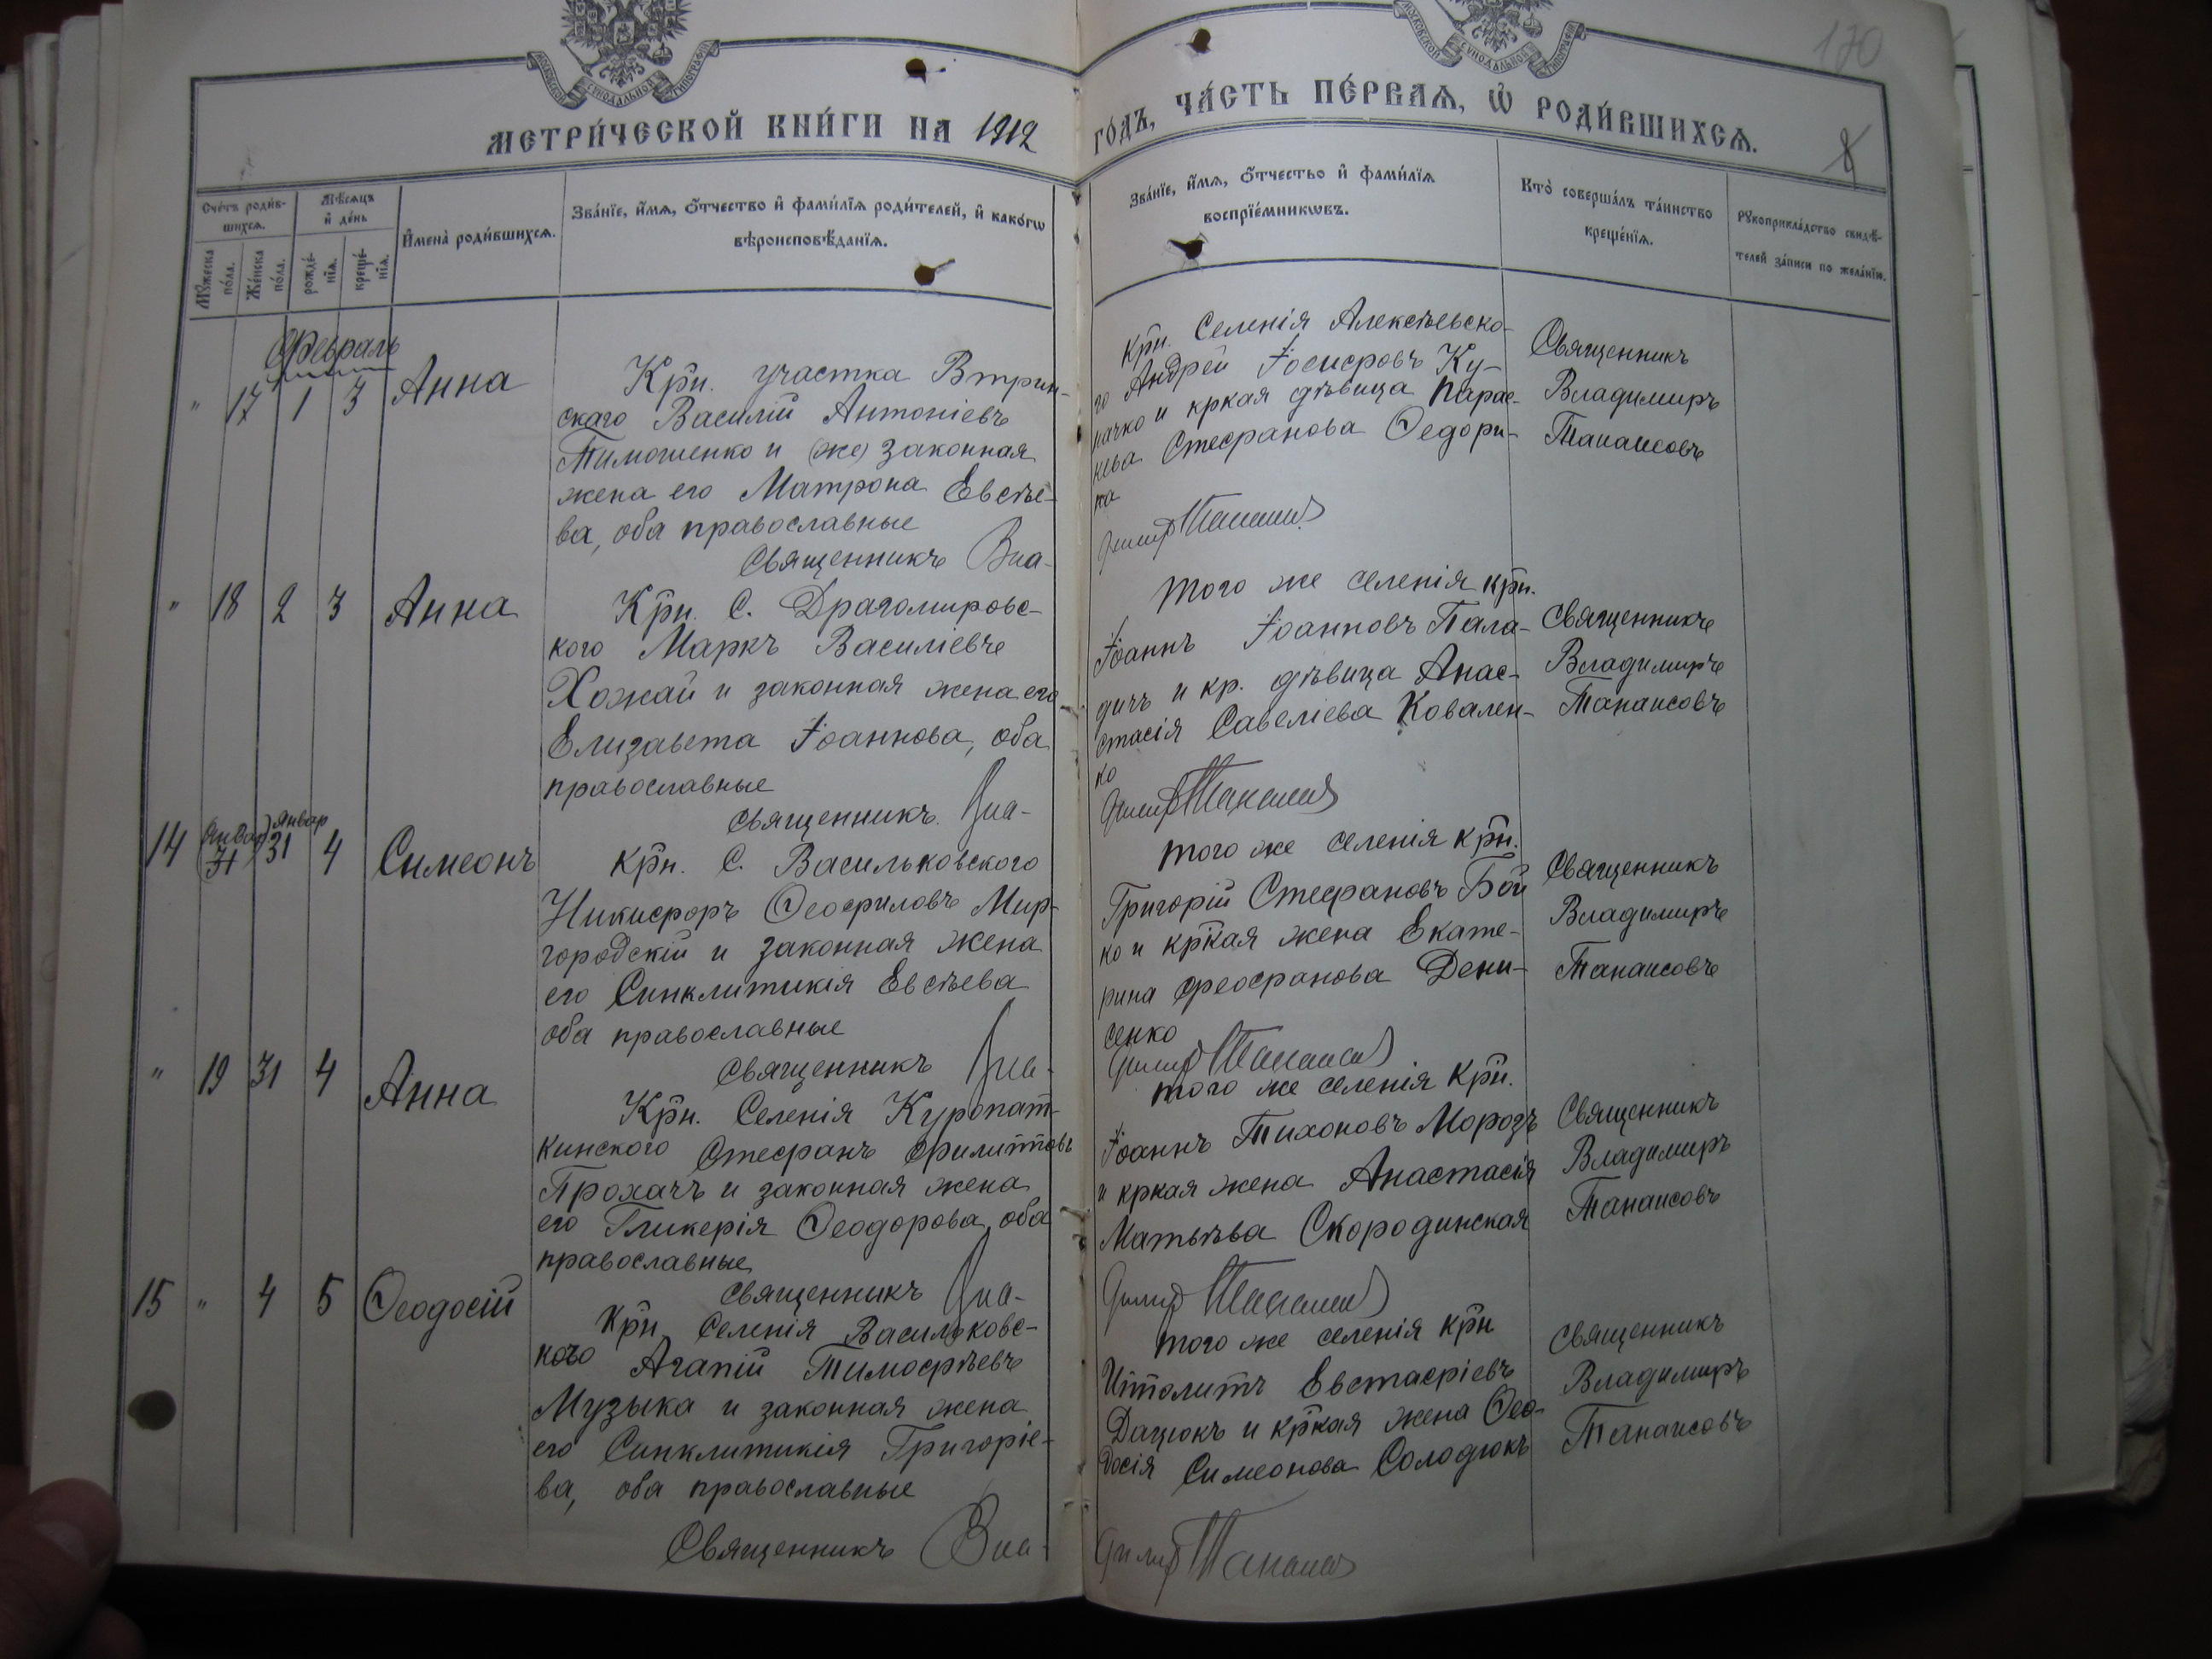 МОСКОВСКОЙ СѴНОДАЛЬНОЙ ТИПОГРАФІИ
МОСКОВСКОЙ СѴНОДАЛЬНОЙ ТИПОГРАФІИ
170
МЕТРИ́ЧЕСКОЙ КНИ́ГИ НА 1912
ГО́ДЪ, ЧА́СТЬ ПЕ́РВАѦ, Ѡ҆ РОДИ́ВШИХСѦ.
8
Сче́тъ роди́в-
шихсѧ.
Мѣ́сѧцъ
и҆ де́нь
Мꙋ́жеска по́ла.
Же́нска по́ла.
рожде́-
нїѧ.
креще́-
нїѧ.
И҆мена̀ роди́вшихсѧ.
Зва́нїе, и҆́мѧ, ѻ҆́тчество и҆ фами́лїѧ роди́телей, и҆ како́гѡ
вѣроисповѣ́данїѧ.
Зва́нїе, и҆́мѧ, ѻ҆́тчество и҆ фами́лїѧ
воспрїе́мникѡвъ.
Кто̀ соверша́лъ та́инство
креще́нїѧ.
Рꙋкоприкла́дство свидѣ́-
телей за́писи по жела́нїю.
Февраль
" 17 1 3 Анна
Крн. участка Втрин-
скаго Василій Антоніевъ
Тимошенко и (же) законная
жена его Матрона Евсѣе-
ва, оба православные
Священникъ Вла-
Крн. Селенія Алексѣевско-
го Андрей Іосифовъ Ку-
и кркая дѣвица Парас-
Стефанова Ѳедори-
на
димир Танаисов
Священникъ
Владимиръ
Танаисовъ
" 18 2 3 Анна
Крн. С. Драгомировс-
кого Маркъ Василіевъ
Хожай и законная жена его
Елизавета Іоаннова, оба
православные
священникъ Вла-
Того же селенія крн.
Іоаннъ Іоанновъ Пала-
дичъ и кр. дѣвица Анас-
стасія Савеліева Ковален-
ко
димир Танаисов
Священникъ
Владимиръ
Танаисовъ
14 (Январ 31) Январ 31 4 Симеонъ
Крн. С. Васильковского
Никифоръ Ѳеофиловъ Мир-
городскій и законная жена
его Синклитикія Евсѣева
оба православные
Священникъ Вла-
того же селенія крн.
Григорій Стефановъ Бой
ко и кркая жена Екате-
рина Феофанова Дени-
сенко
димир Танаисов
Священникъ
Владимиръ
Танаисовъ
" 19 31 4 Анна
Крн. Селенія Куропат-
кинского Стефанъ Филипповъ
Прохачъ и законная жена
его Гликерія Ѳеодорова, оба
православные
священникъ Вла-
того же селенія крн.
Іоаннъ Тихоновъ Морозъ
и кркая жена Анастасія
Матвѣева Скородинская
димир Танаисов
Священникъ
Владимиръ
Танаисовъ
15 " 4 5 Ѳеодосій
Крн Селенія Васильковс-
кого Агапій Тимофѣевъ
Музыка и законная жена
его Синклитикія Григоріе-
ва, оба православные
Священникъ Вла-
того же селенія крн
Ипполитъ Евстафіевъ
Дацюкъ и кркая жена Ѳео-
досія Симеонова Солодюкъ
димир Танаисов
Священникъ
Владимиръ
Танаисовъ